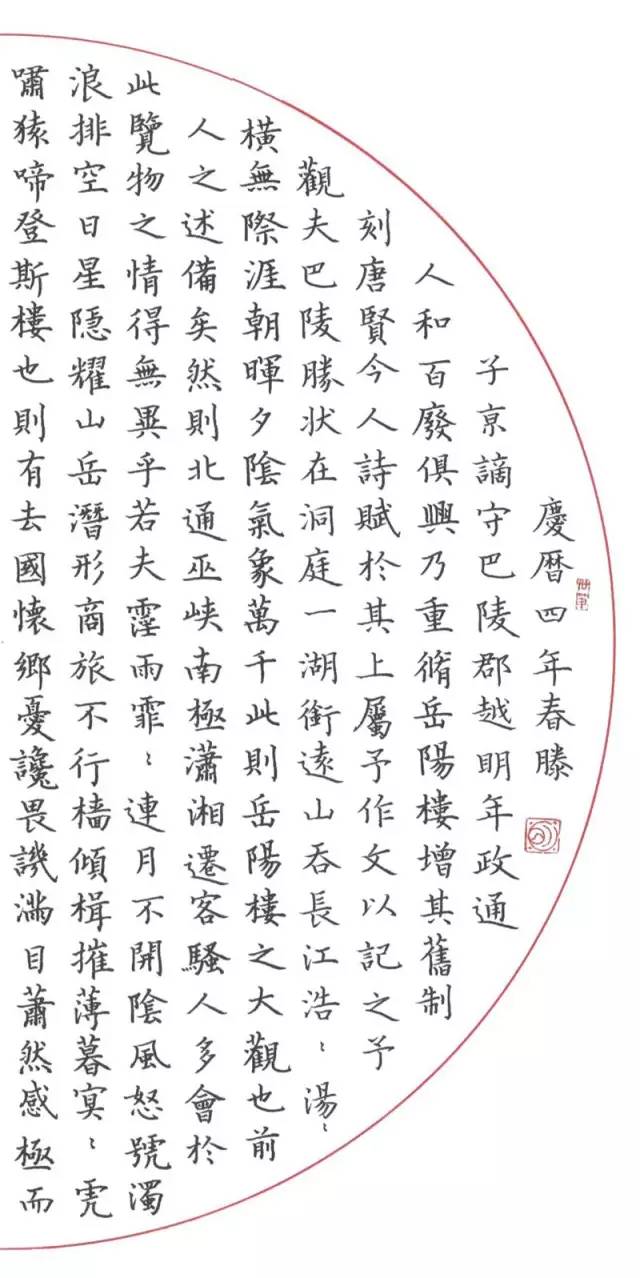 慶暦四年春滕
子亰謫守巴陵郡越明年政通
人和百廢俱興乃重脩岳陽樓增其舊制
刻唐賢今人詩賦於其上屬予作文以記之予
觀夫巴陵勝狀在洞庭一湖銜遠山吞長江浩〻湯〻
橫無際涯朝暉夕陰氣象萬千此則岳陽樓之大觀也前
人之述備矣然則北通巫峽南極瀟湘遷客騷人多會於
此覽物之情得無異乎若夫霪雨霏〻連月不開陰風怒號濁
浪排空日星隱耀山岳潛形商旅不行檣傾楫摧薄暮冥〻虎
嘯猿啼登斯樓也則有去國懷鄉憂讒畏譏滿目蕭然感極而